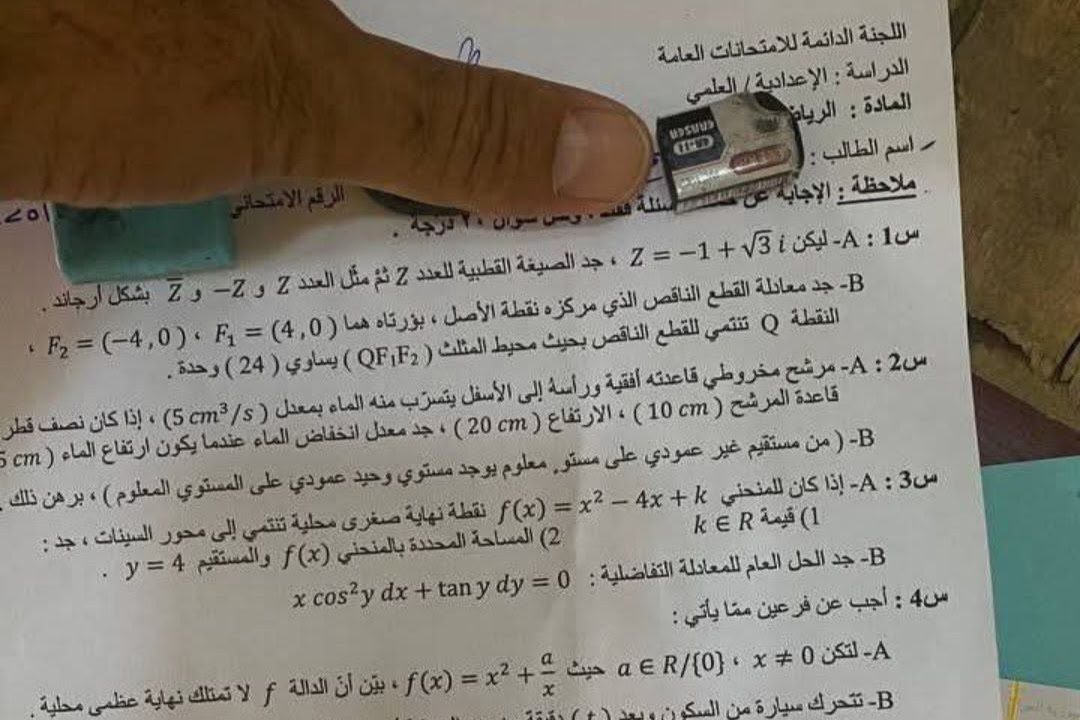 اللجنة الدائمة للامتحانات العامة
الدراسة : الإعدادية / العلمي
المادة :
اسم الطالب :
ERASER
الرقم الامتحاني
ملاحظة : الإجابة عن
درجة .
س1 : A- ليكن Z = −1 + √3 i ، جد الصيغة القطبية للعدد Z ثمّ مثّل العدد Z و −Z و Z̅ بشكل أرجاند .
B- جد معادلة القطع الناقص الذي مركزه نقطة الأصل ، بؤرتاه هما F₁ = (4,0) ، F₂ = (−4,0) ،
النقطة Q تنتمي للقطع الناقص بحيث محيط المثلث (QF₁F₂) يساوي (24) وحدة .
س2 : A- مرشح مخروطي قاعدته أفقية ورأسهُ إلى الأسفل يتسرّب منه الماء بمعدل (5 cm³/s) ، إذا كان نصف قطر
قاعدة المرشح (10 cm) ، الارتفاع (20 cm) ، جد معدل انخفاض الماء عندما يكون ارتفاع الماء (5 cm
B- ( من مستقيم غير عمودي على مستوٍ معلوم يوجد مستوي وحيد عمودي على المستوي المعلوم ) ، برهن ذلك .
س3 : A- إذا كان للمنحني f(x) = x² − 4x + k نقطة نهاية صغرى محلية تنتمي إلى محور السينات ، جد :
1) قيمة k ∈ R 2) المساحة المحددة بالمنحني f(x) والمستقيم y = 4 .
B- جد الحل العام للمعادلة التفاضلية : x cos²y dx + tan y dy = 0
س4 : أجب عن فرعين ممّا يأتي :
A- لتكن f(x) = x² + a/x حيث a ∈ R/{0} ، x ≠ 0 ، بيّن أنّ الدالة f لا تمتلك نهاية عظمى محلية .
B- تتحرك سيارة من السكون وبعد (t) دقيقة